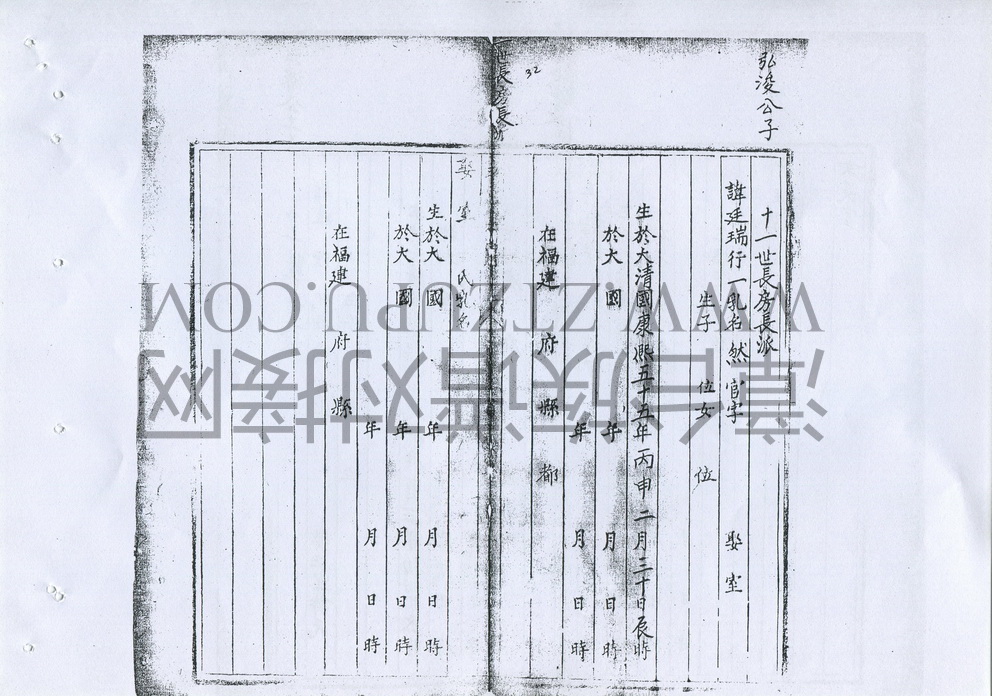 弘浚公子
十一世長房長派
諱廷瑞行一乳名然官字 娶室
生子 位女 位
生於大清國康熙五十五年丙申二月三十日辰時
於大 國 年 月 日 時
年 月 日 時
在福建 府 縣 都
32
世長房長
娶室 氏乳名
生於大 國 年 月 日 時
於大 國 年 月 日 時
年 月 日 時
在福建 府 縣
WWW.ZTZUPU.COM
漳台族谱对接网